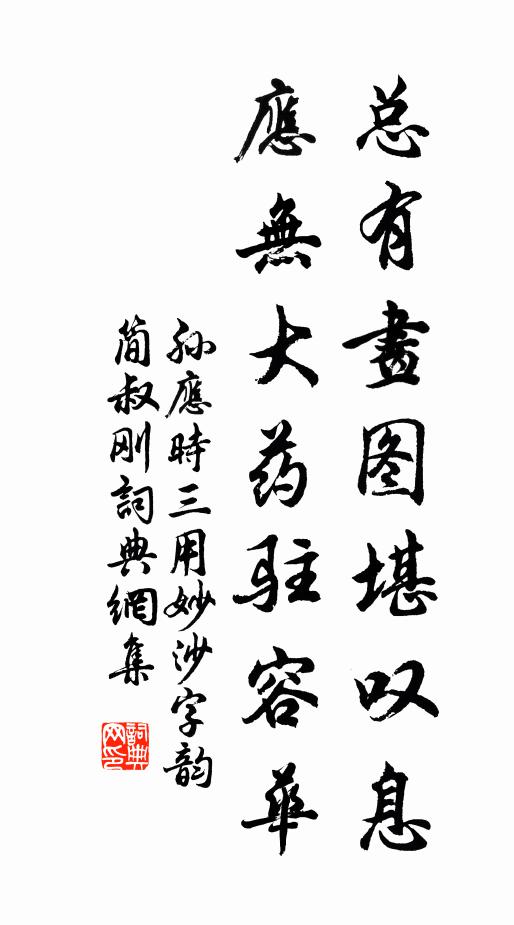 总有畫图堪叹息
應無大药驻容華
孙應時三用妙沙字韵
簡叔刚詞典網集
詞典网印